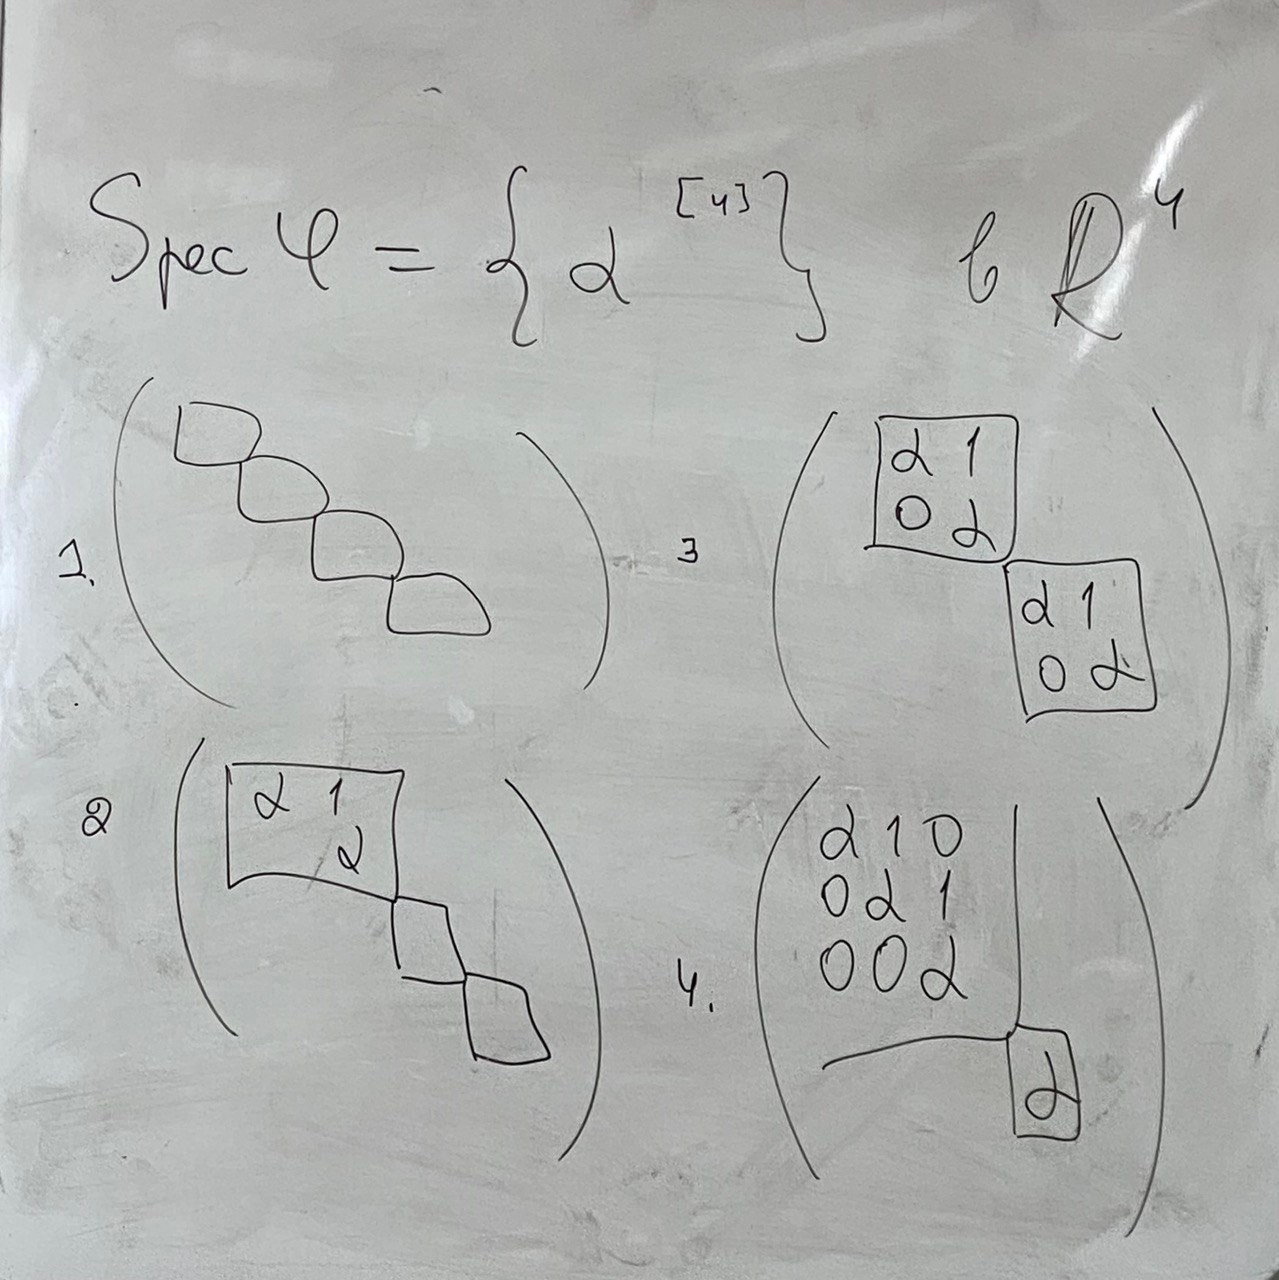 Spec φ = { α^[4] } в ℝ^4
1.
3
α 1
0 α
α 1
0 α
2
α 1
α
4.
α 1 0
0 α 1
0 0 α
α